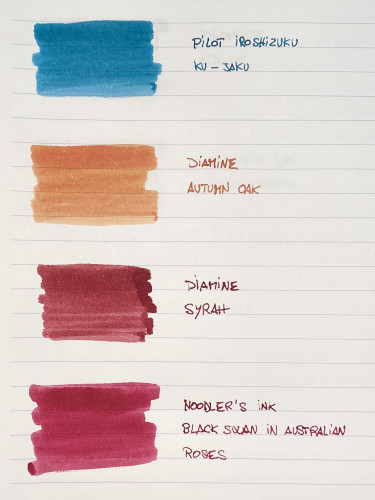 PILOT IROSHIZUKU
KU-JAKU
DIAMINE
AUTUMN OAK
DIAMINE
SYRAH
NOODLER'S INK
BLACK SWAN IN AUSTRALIAN
ROSES